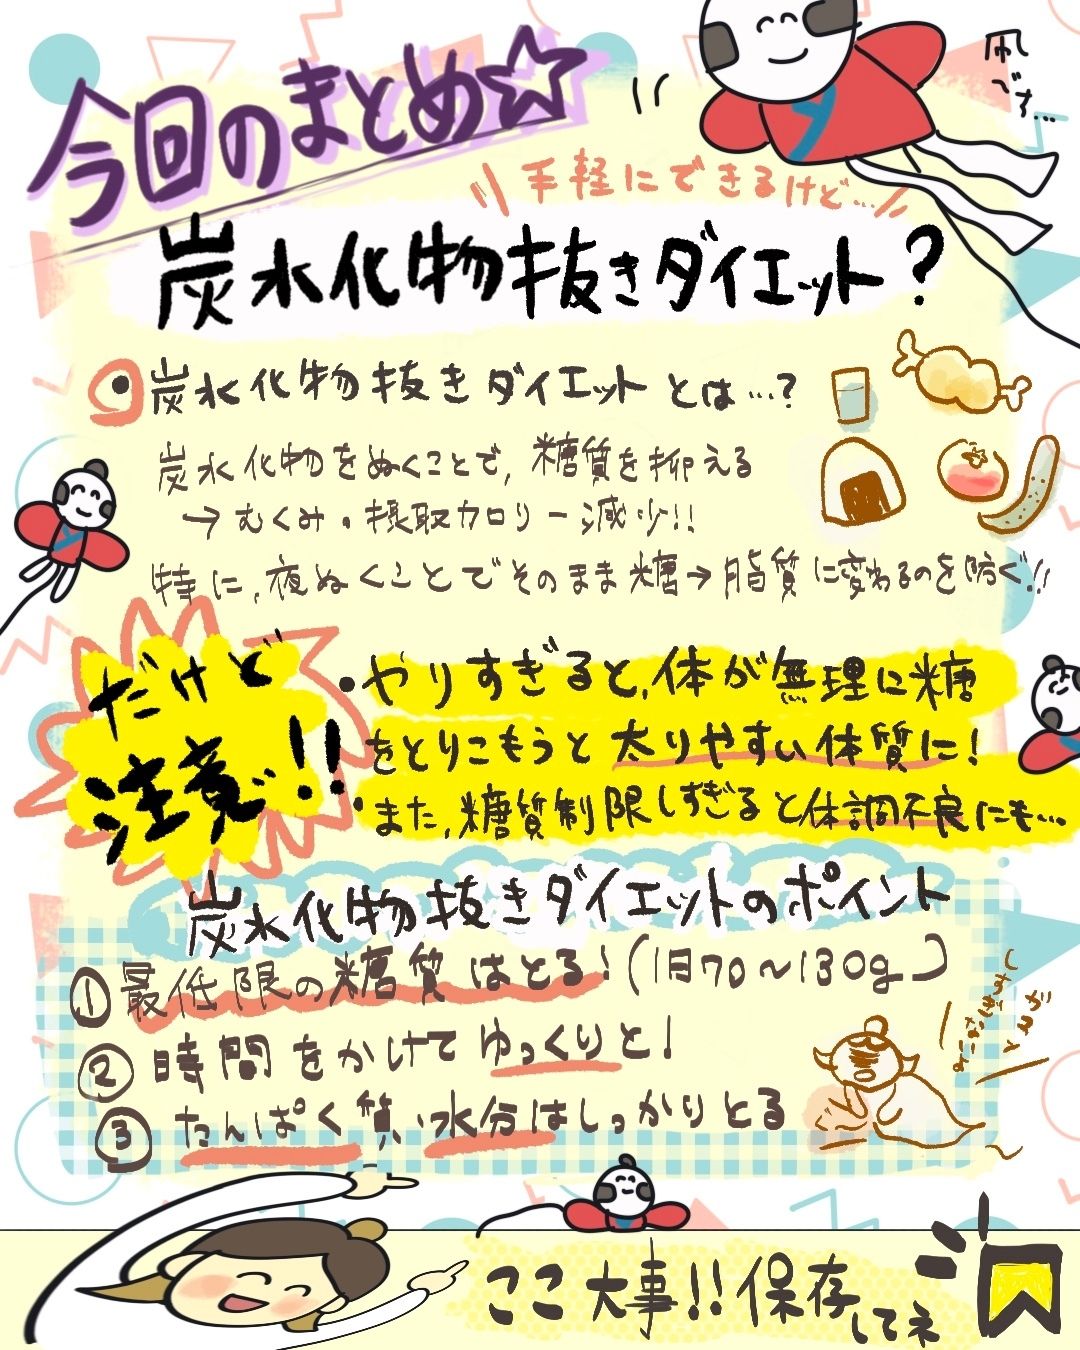 今回のまとめ☆
凧です…
手軽にできるけど…
炭水化物抜きダイエット?
炭水化物抜きダイエットとは…?
炭水化物をぬくことで,糖質を抑える
→むくみ・摂取カロリー減少!!
特に,夜ぬくことでそのまま糖→脂質に変わるのを防ぐ!!
だけど
注意!!
・やりすぎると,体が無理に糖
をとりこもうと太りやすい体質に!
・また,糖質制限しすぎると体調不良にも…
炭水化物抜きダイエットのポイント
①最低限の糖質はとる!(1日70〜130g)
②時間をかけてゆっくりと!
③たんぱく質,水分はしっかりとる
ガマン
しすぎ
ないでよ
ここ大事!!保存してネ